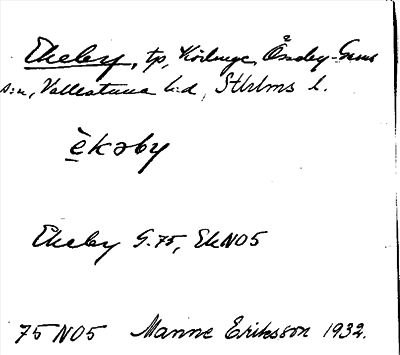 Ekeby, tp, Kårlunge, Össeby-Garns
s:n, Vallentuna h:d, Sthlms l.
ὲkəby
Ekeby G.75, EkNO5
75NO5 Manne Eriksson 1932.